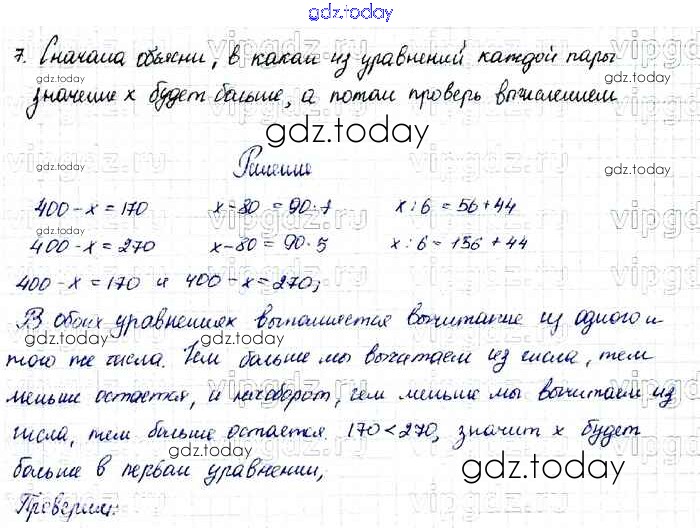 gdz.today
7. Сначала объясни, в каком из уравнений каждой пары
значение x будет больше, а потом проверь вычислением
gdz.today
Решение
400-x=170 x-80=90·7 x:6=56+44
400-x=270 x-80=90·5 x:6=156+44
400-x=170 и 400-x=270;
В обоих уравнениях выполняется вычитание из одного и
того же числа. Чем больше мы вычитаем из числа, тем
меньше остается, и наоборот, чем меньше мы вычитаем из
числа, тем больше остается. 170<270, значит x будет
больше в первом уравнении,
gdz.today
Проверим: